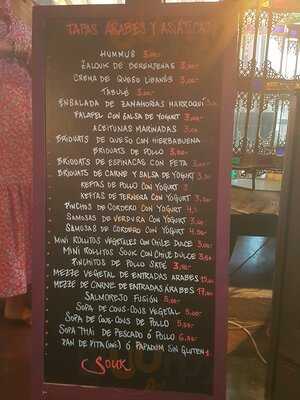 TAPAS ARABES Y ASIÁTICAS
HUMMUS 3,00.-
ZALOUK DE BERENJENAS 3,00.-
CREMA DE QUESO LIBANÉS 3,00.-
TABULÉ 3,00.-
ENSALADA DE ZANAHORIAS MARROQUÍ
FALAFEL CON SALSA DE YOGURT 3,00.-
ACEITUNAS MARINADAS
BRIQUATS DE QUESO CON HIERBABUENA
BRIQUATS DE POLLO
BRIQUATS DE ESPINACAS CON FETA
BRIQUATS DE CARNE Y SALSA DE YOGURT
KEFTAS DE POLLO CON YOGURT
KEFTAS DE TERNERA CON YOGURT
PINCHOS DE CORDERO CON YOGURT
SAMOSAS DE VERDURA CON YOGURT
SAMOSAS DE CORDERO CON YOGURT
MINI ROLLITOS VEGETALES CON CHILE DULCE
MINI ROLLITOS SOUK CON CHILE DULCE
PINCHITOS DE POLLO SATÉ
MEZZE VEGETAL DE ENTRADAS ARABES
MEZZE DE CARNE DE ENTRADAS ARABES
SALMOREJO FUSIÓN 5,00.-
SOPA DE COUS-COUS VEGETAL 5,00.-
SOPA DE COUS-COUS DE POLLO
SOPA THAI DE PESCADO Ó POLLO
PAN DE PITA (UNI) Ó PAPADUM SIN GLUTEN 1
SOUK